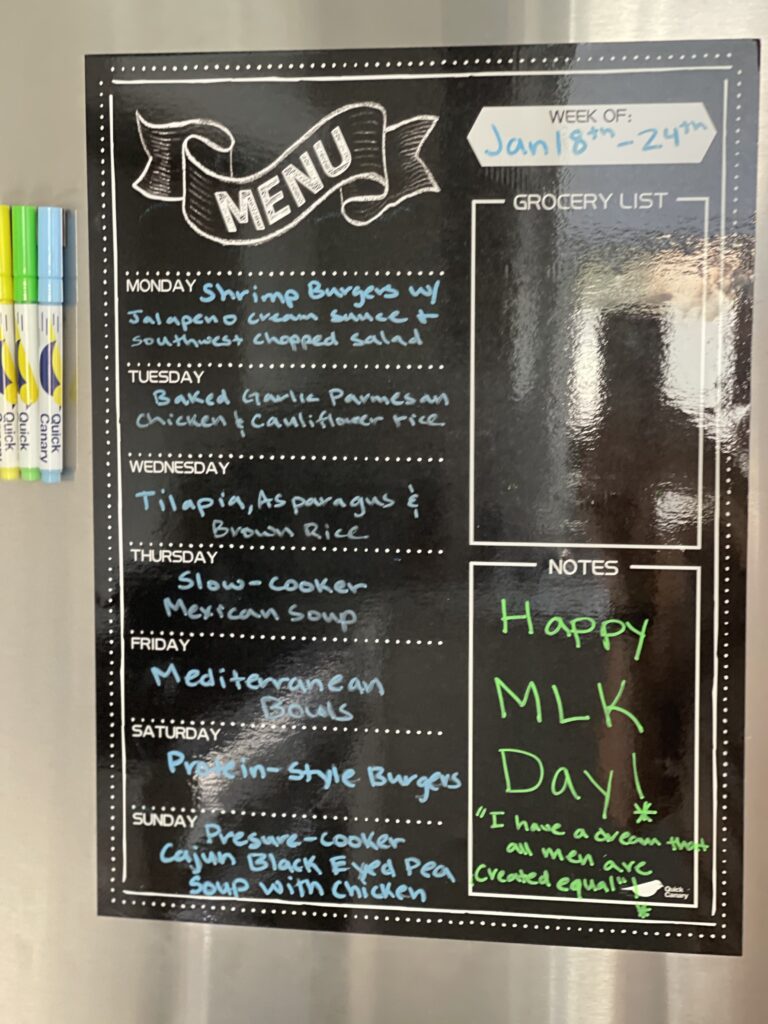 MENU
WEEK OF:
Jan 18th - 24th
MONDAY Shrimp Burgers w/
Jalapeno cream sauce +
southwest chopped salad
TUESDAY
Baked Garlic Parmesan
Chicken & Cauliflower rice
WEDNESDAY
Tilapia, Asparagus &
Brown Rice
THURSDAY
Slow-cooker
Mexican Soup
FRIDAY
Mediterranean
Bowls
SATURDAY
Protein-Style Burgers
SUNDAY Presure-cooker
Cajun Black Eyed Pea
Soup with Chicken
GROCERY LIST
NOTES
Happy
MLK
Day!
*
"I have a dream that
all men are
created equal"!
*
Quick
Canary
Quick
Canary
Quick
Canary
Quick